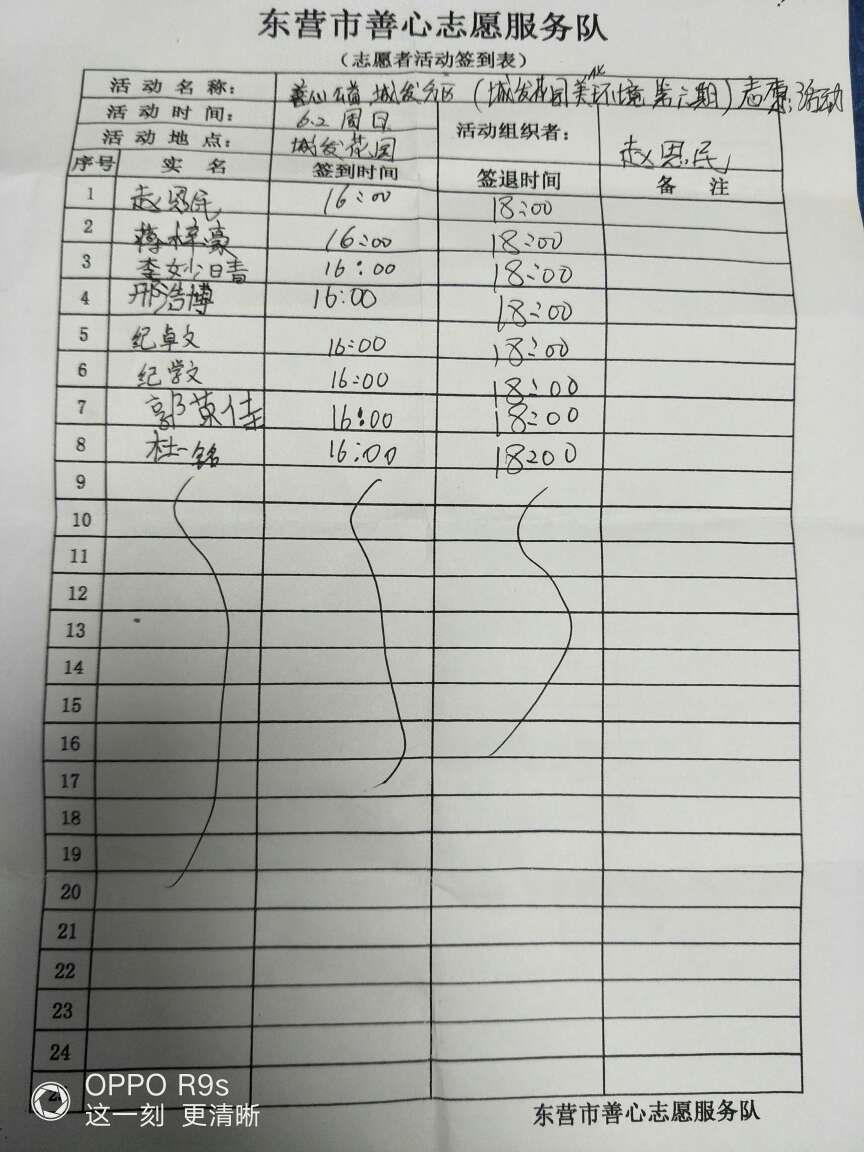 东营市善心志愿服务队
(志愿者活动签到表)
活动名称: 善心公益 城发分区 (城发花园美化环境 第六期) 志愿活动
活动时间: 6.2 周日 活动组织者: 赵恩民
活动地点: 城发花园
序号 实名 签到时间 签退时间 备注
1 赵恩民 16:00 18:00
2 蒋梓豪 16:00 18:00
3 李妙晴 16:00 18:00
4 邢浩博 16:00 18:00
5 纪卓文 16:00 18:00
6 纪学文 16:00 18:00
7 郭英佳 16:00 18:00
8 杜一铭 16:00 18:00
9
10
11
12
13
14
15
16
17
18
19
20
21
22
23
24
OPPO R9s
这一刻 更清晰
东营市善心志愿服务队